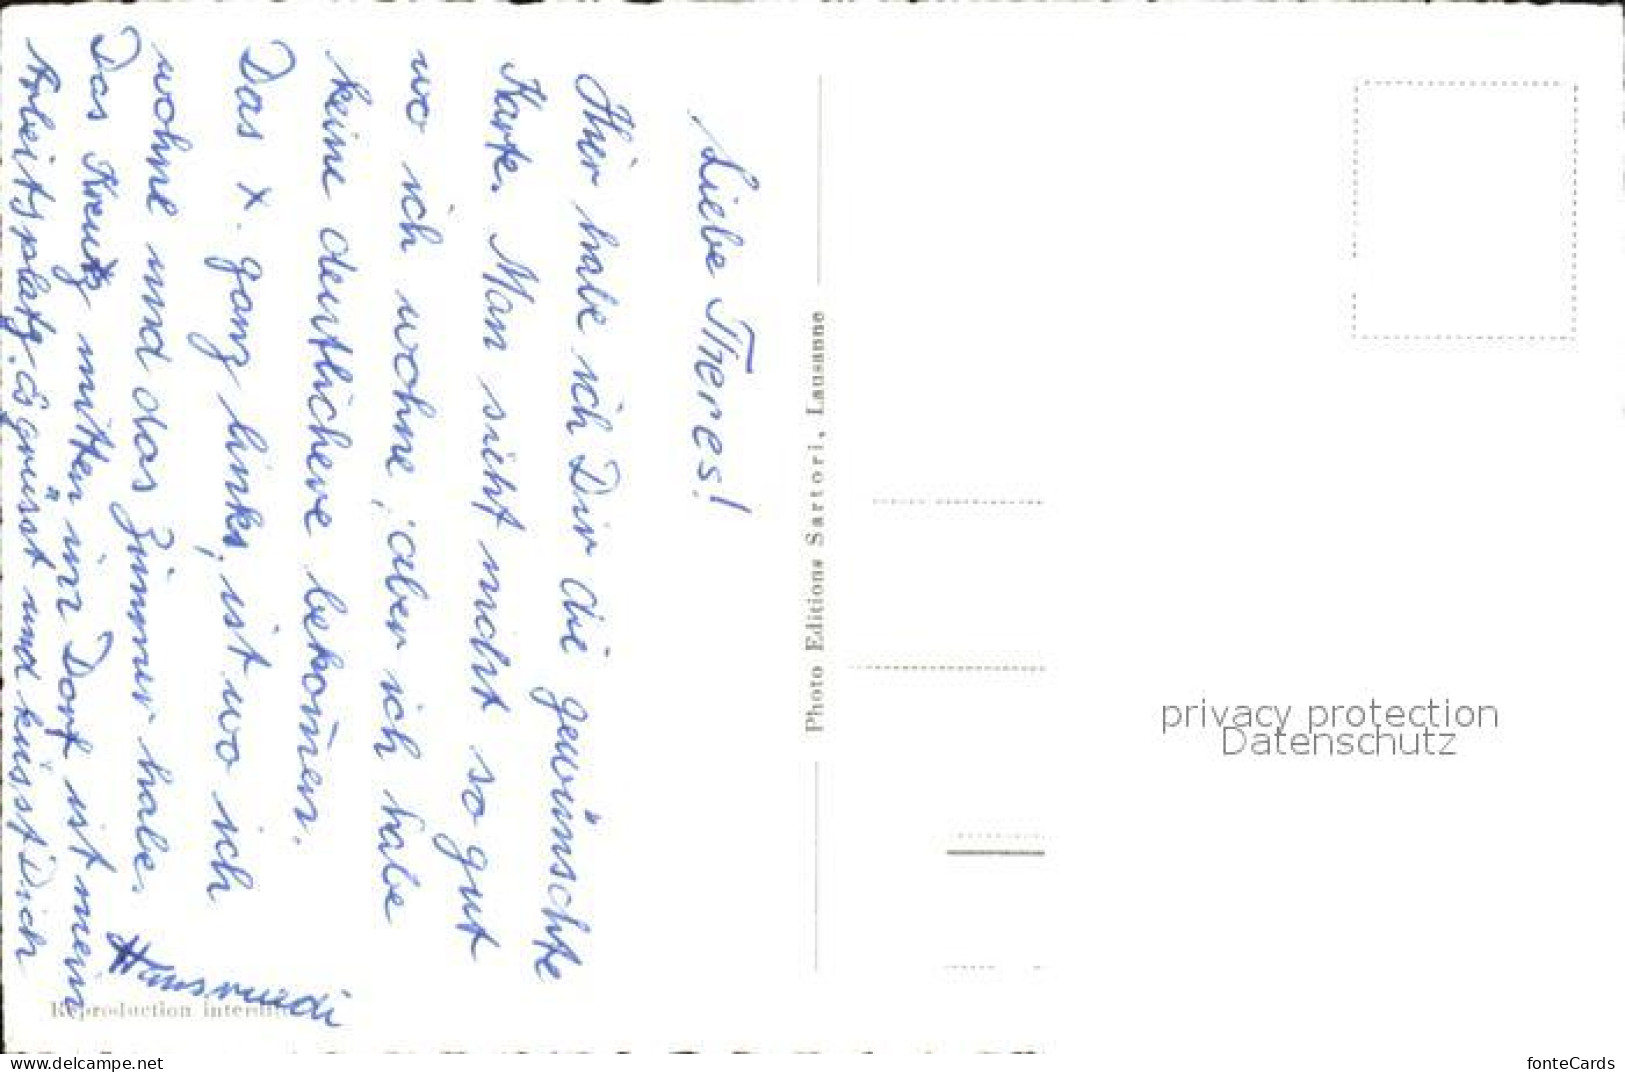 Liebe Theres!
Hier habe ich Dir die gewünschte
Karte. Man sieht nicht so gut
wo ich wohne, aber ich habe
keine deutlichere bekom̄en.
Das x. ganz links, ist wo ich
wohne und das Zimmer habe.
Das Kreuz mitten im Dorf ist mein
Arbeitsplatz. Es grüsst und küsst Dich
Hansruedi
Reproduction interdite
Photo Editions Sartori, Lausanne
privacy protection
Datenschutz
www.delcampe.net
fonteCards